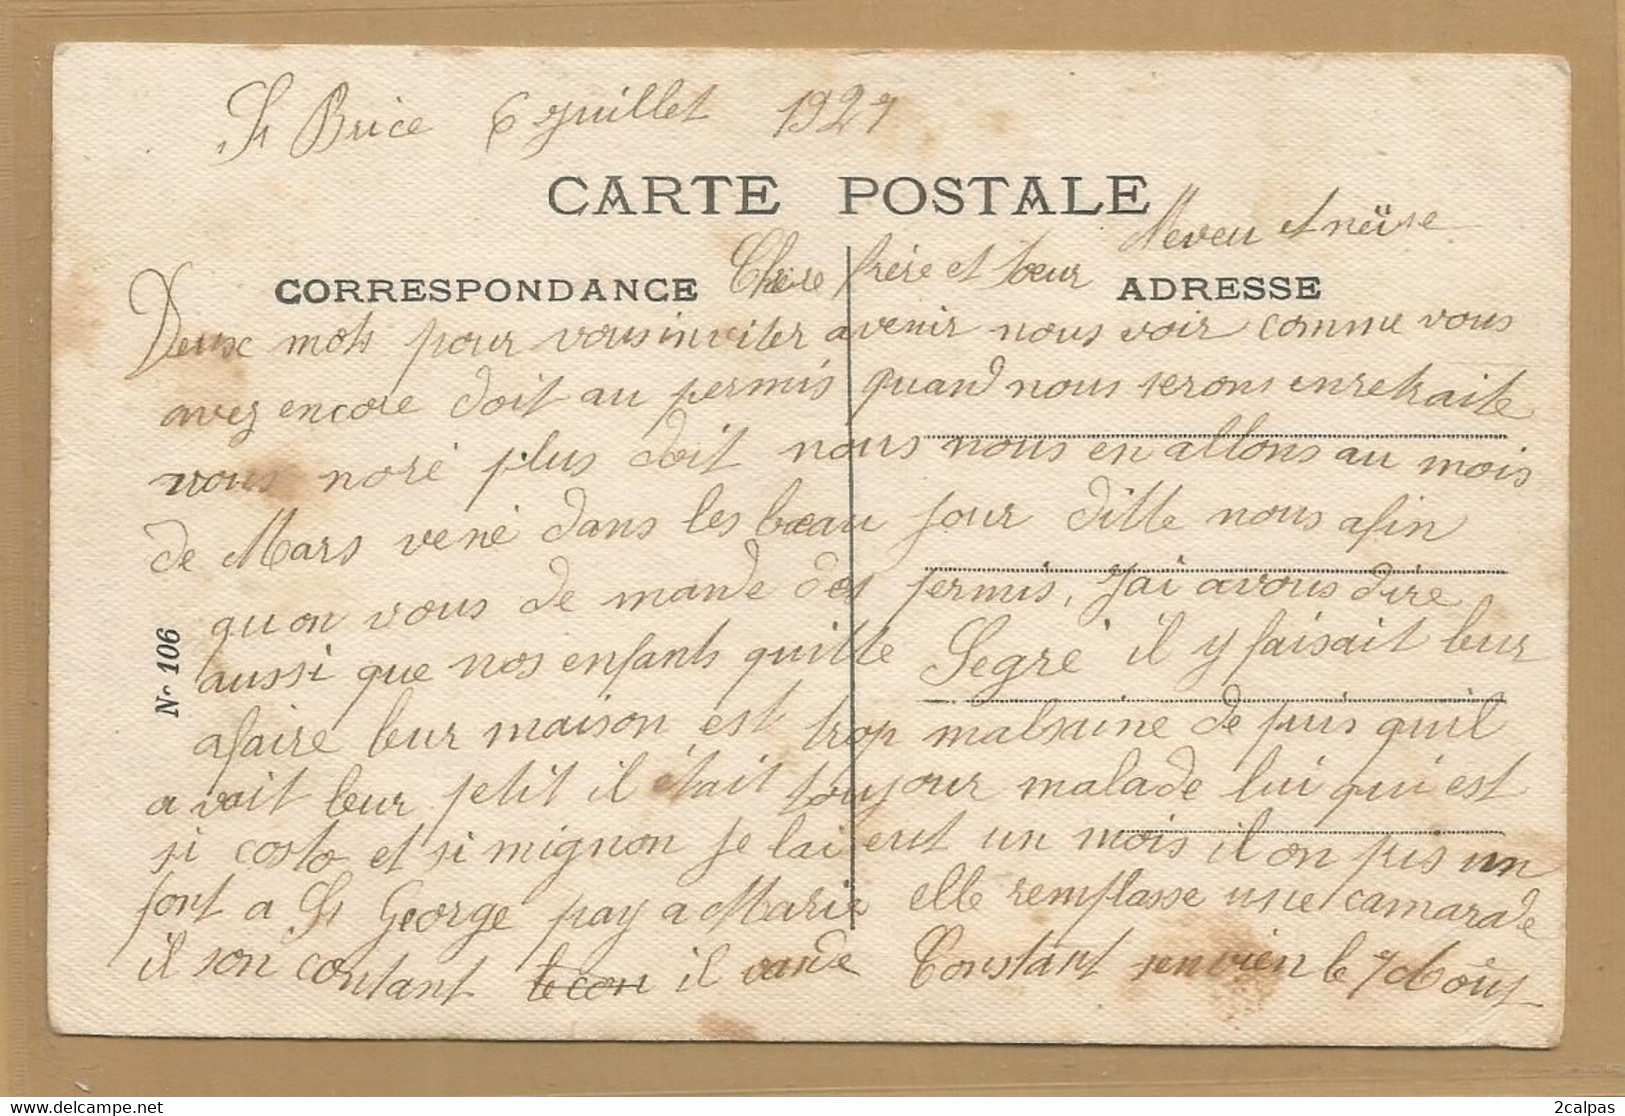 St Brice 6 Juillet 1927
CARTE POSTALE
Neveu et nèïse
Chère frère et sœur
CORRESPONDANCE
ADRESSE
Deuse mots pour vous inviter a venir nous voir comme vous
avez encore doit au permis quand nous serons en retraite
vous noré plus doit nous nous en allons au mois
de Mars vené dans les beau jour ditte nous afin
quon vous de mande des permis, J'ai a vous dire
aussi que nos enfants quitte Segré il y faisait leur
afaire leur maison est trop malsaine de puis quil
a voit leur petit il était toujour malade lui qui est
si costo et si mignon je lai eut un mois il on pris un
font a St George pay a Marie elle remplasse une camarade
il son contant il vande Constant renvien le 7 Aôut
Nº 106
2calpas